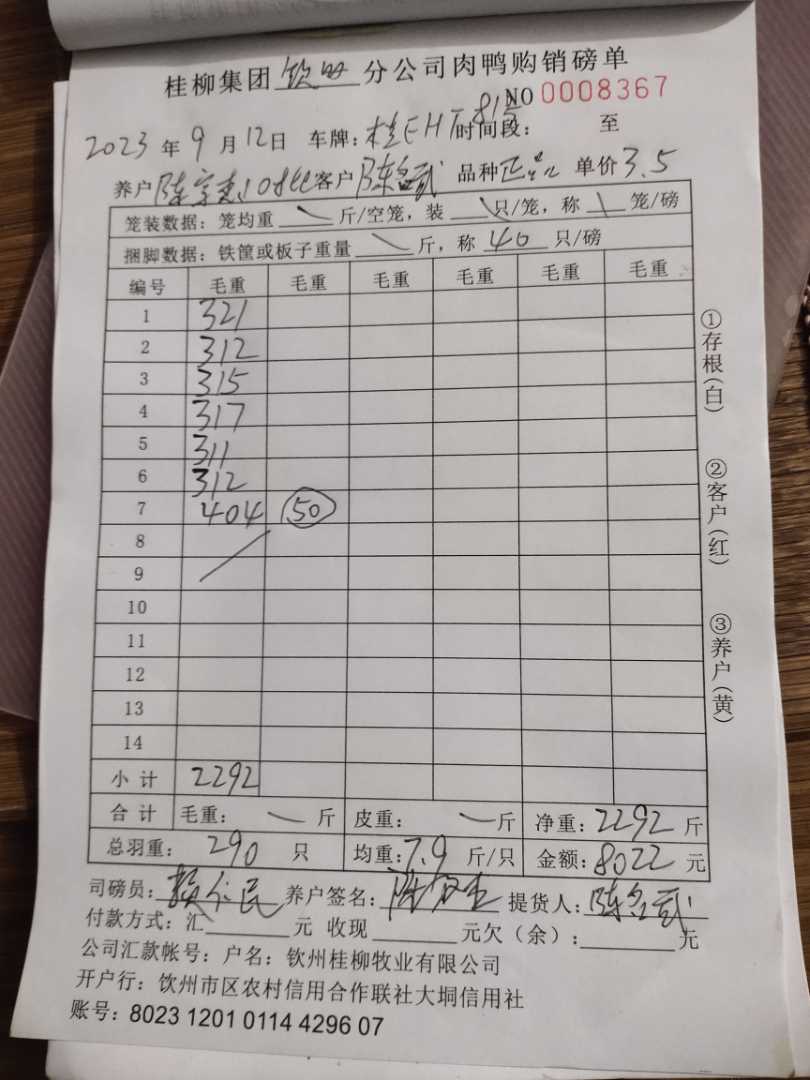 桂柳集团 钦州 分公司肉鸭购销磅单
NO 0008367
2023 年 9 月 12 日 车牌: 桂EHT815 时间段: 至
养户 陈 客户 陈 武 品种 正 单价 3.5
笼装数据: 笼均重 \ 斤/空笼, 装 \ 只/笼, 称 \ 笼/磅
捆脚数据: 铁筐或板子重量 \ 斤, 称 40 只/磅
编号 毛重 毛重 毛重 毛重 毛重 毛重
1 321
2 312
3 315
4 317
5 311
6 312
7 404 50
8
9
10
11
12
13
14
小计 2292
合计 毛重: \ 斤 皮重: \ 斤 净重: 2292 斤
总羽重: 290 只 均重: 7.9 斤/只 金额: 8022 元
司磅员: 民 养户签名: 陈 提货人: 陈 武
付款方式: 汇 元 收现 元欠(余): 元
公司汇款帐号: 户名: 钦州桂柳牧业有限公司
开户行: 钦州市区农村信用合作联社大垌信用社
账号: 8023 1201 0114 4296 07
①存根(白)
②客户(红)
③养户(黄)